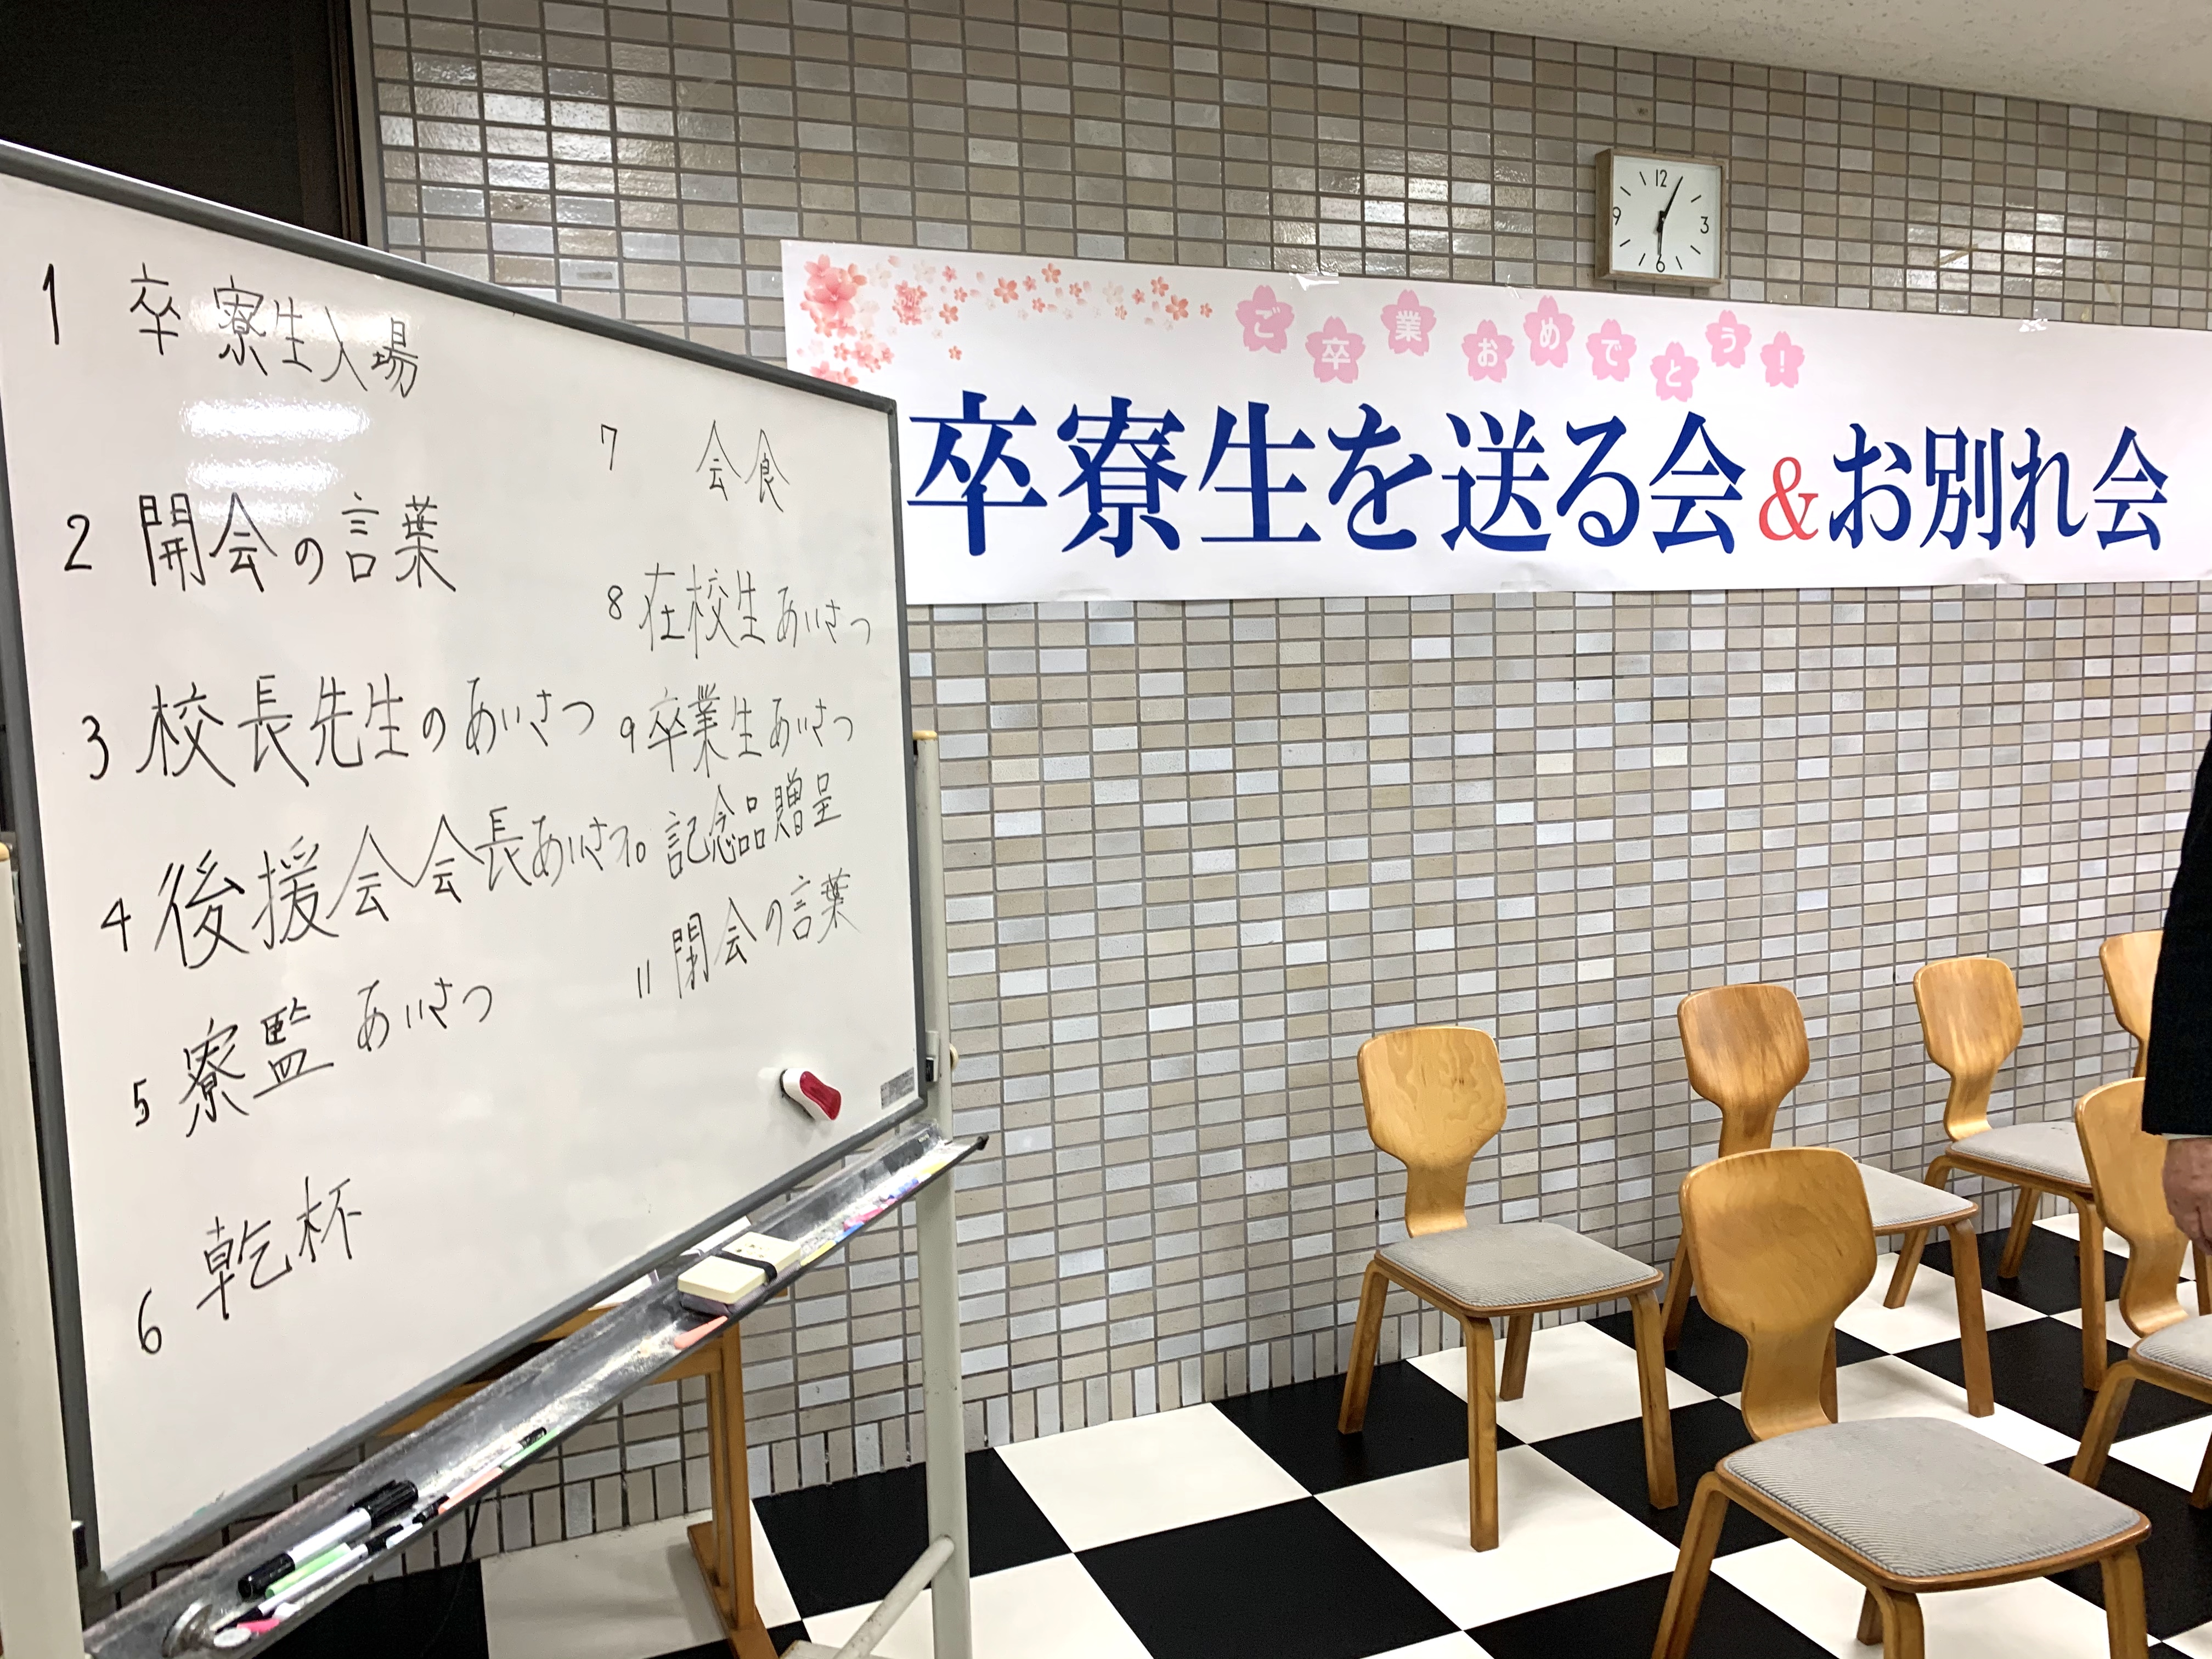 1 卒寮生入場
2 開会の言葉
3 校長先生のあいさつ
4 後援会会長あいさつ
5 寮監 あいさつ
6 乾杯
7 会食
8 在校生あいさつ
9 卒業生あいさつ
10 記念品贈呈
11 閉会の言葉
ご卒業おめでとう!
卒寮生を送る会&お別れ会
12
3
6
9